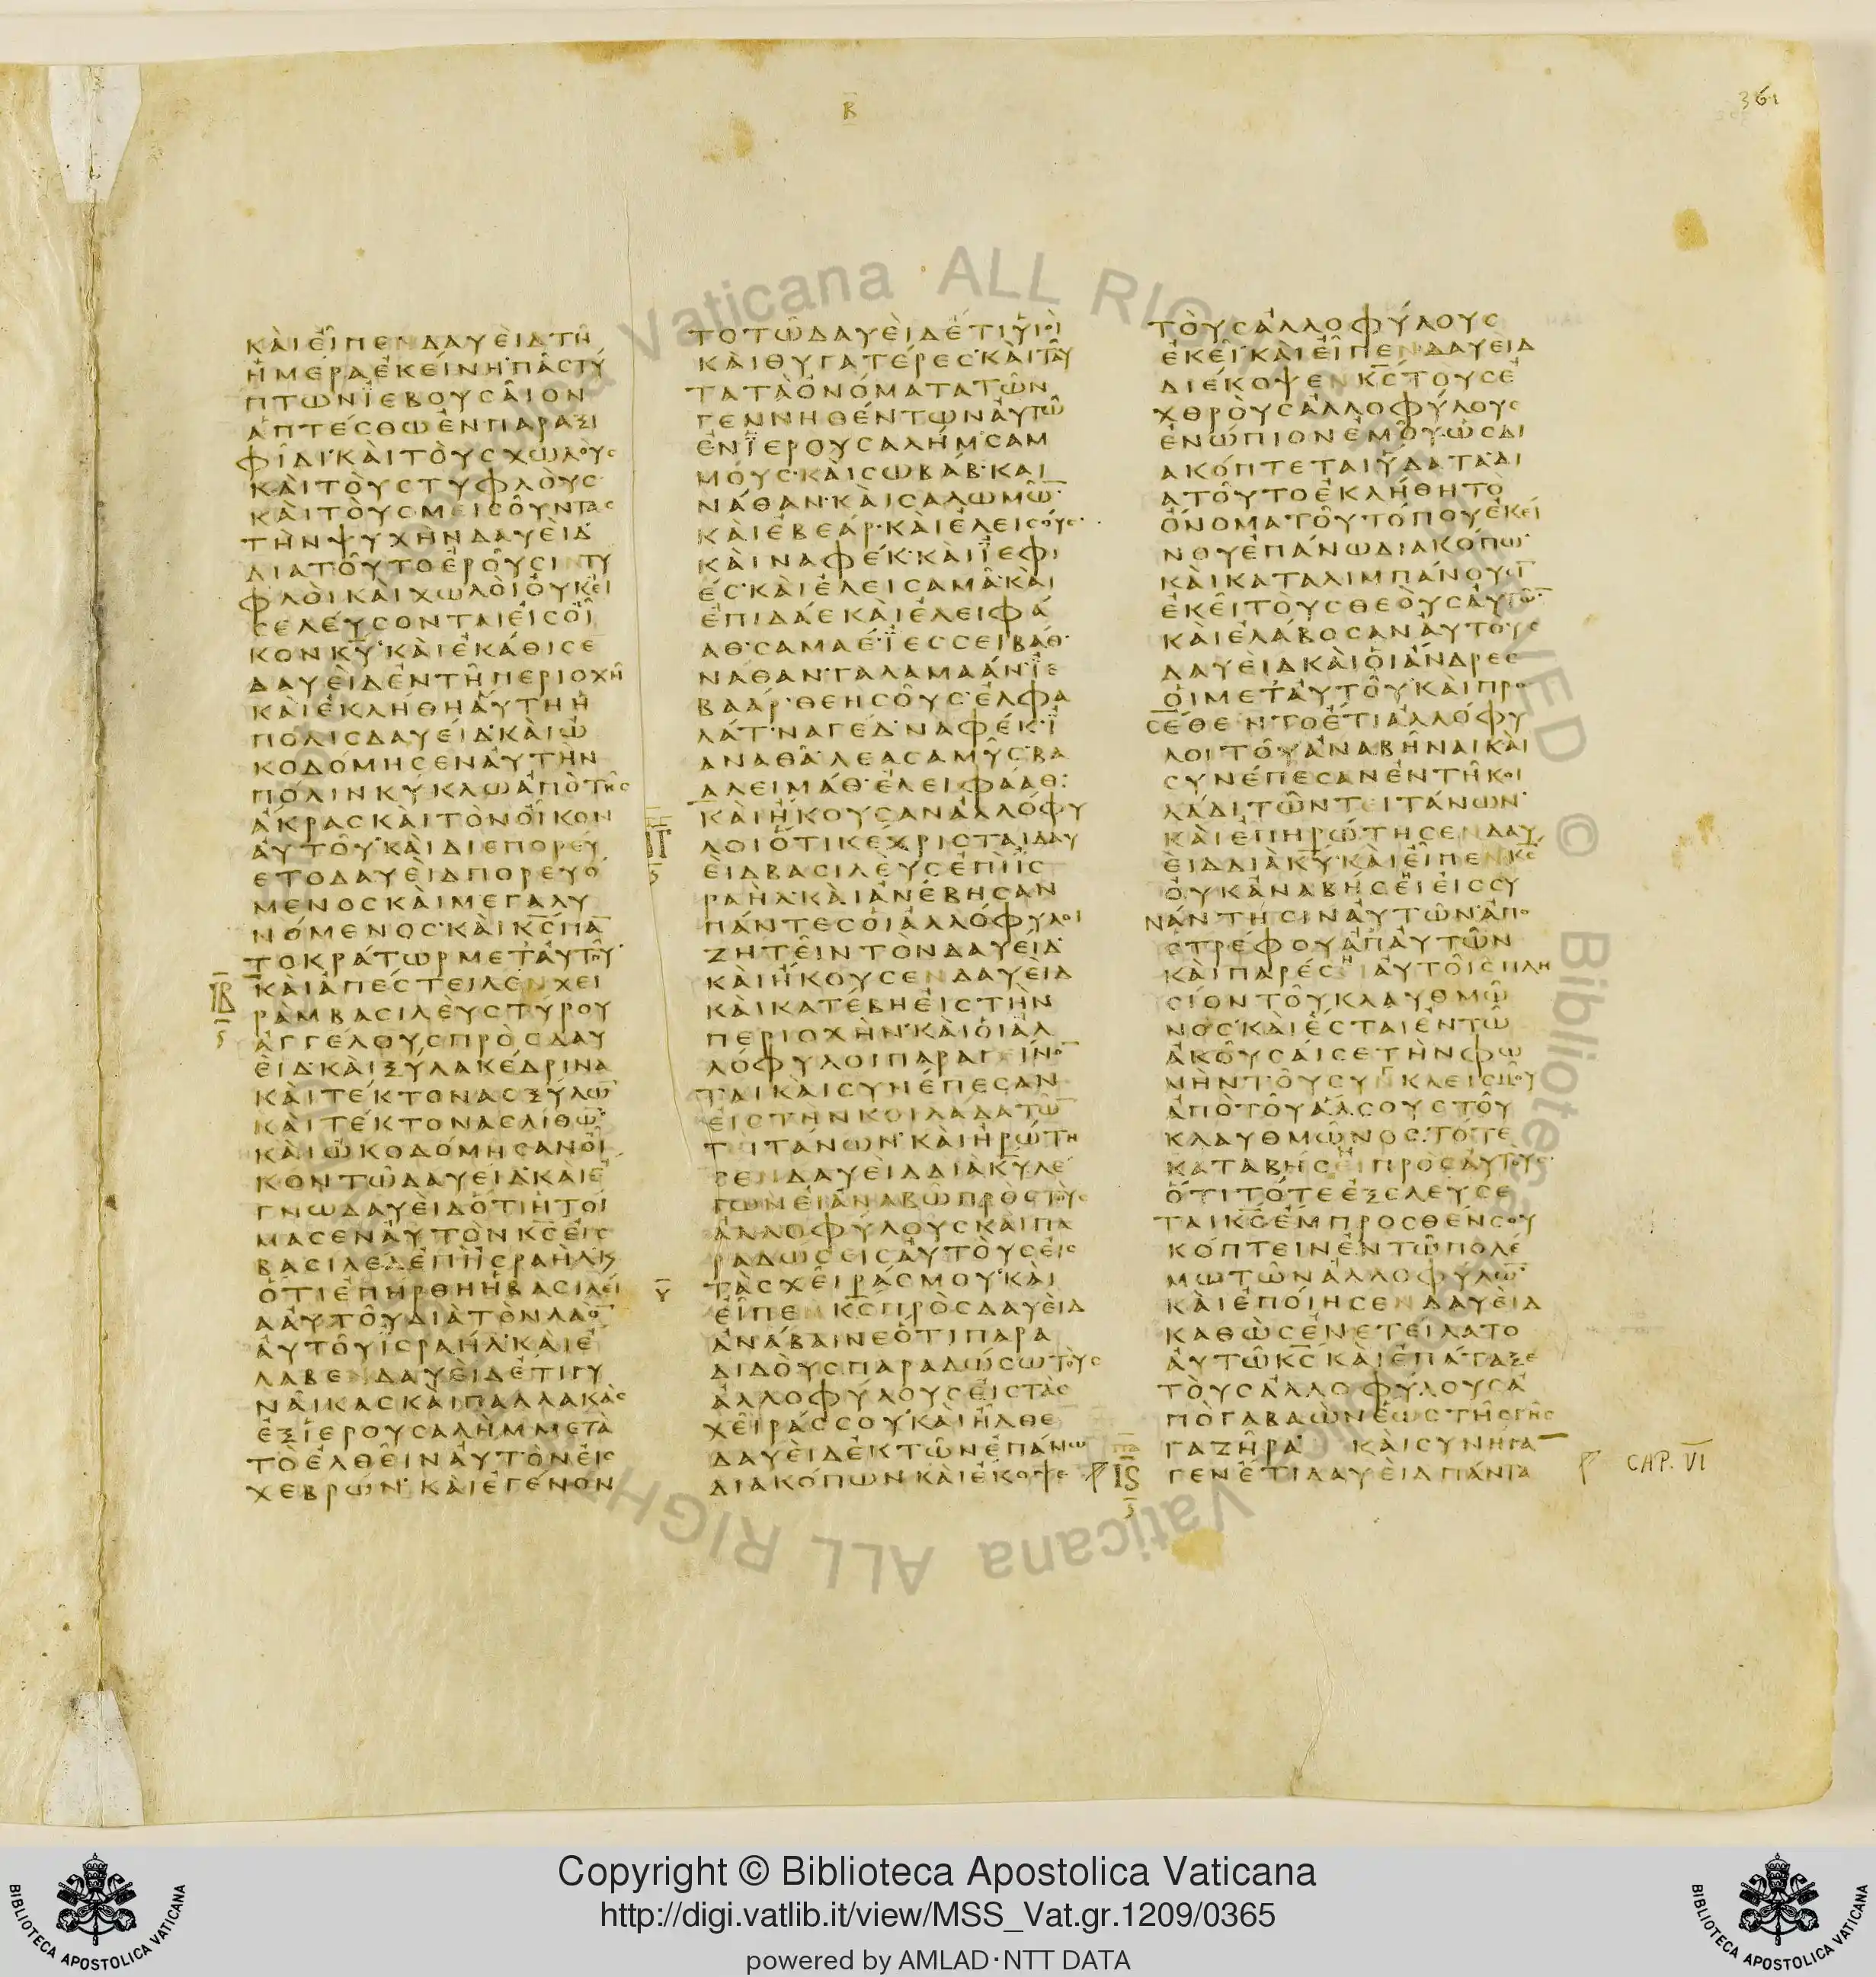 Β
361
ΚΑΙΕΙΠΕΝΔΑΥΕΙΔΤΗ
ΗΜΕΡΑΕΚΕΙΝΗΠΑϹΤΥ
ΠΤΩΝΪΕΒΟΥϹΑΙΟΝ
ΑΠΤΕϹΘΩΕΝΠΑΡΑΞΙ
ΦΙΔΙΚΑΙΤΟΥϹΧΩΛΟΥϹ
ΚΑΙΤΟΥϹΤΥΦΛΟΥϹ
ΚΑΙΤΟΥϹΜΕΙϹΟΥΝΤΑϹ
ΤΗΝΨΥΧΗΝΔΑΥΕΙΔ
ΔΙΑΤΟΥΤΟΕΡΟΥϹΙΝΤΥ
ΦΛΟΙΚΑΙΧΩΛΟΙΟΥΚΕΙ
ϹΕΛΕΥϹΟΝΤΑΙΕΙϹΟΙ
ΚΟΝΚ̅Υ̅ΚΑΙΕΚΑΘΙϹΕ
ΔΑΥΕΙΔΕΝΤΗΠΕΡΙΟΧΗ
ΚΑΙΕΚΛΗΘΗΑΥΤΗΗ
ΠΟΛΙϹΔΑΥΕΙΔΚΑΙΩ
ΚΟΔΟΜΗϹΕΝΑΥΤΗΝ
ΠΟΛΙΝΚΥΚΛΩΑΠΟΤΗϹ
ΑΚΡΑϹΚΑΙΤΟΝΟΙΚΟΝ
ΑΥΤΟΥΚΑΙΔΙΕΠΟΡΕΥ
ΕΤΟΔΑΥΕΙΔΠΟΡΕΥΟ
ΜΕΝΟϹΚΑΙΜΕΓΑΛΥ
ΝΟΜΕΝΟϹΚΑΙΚ̅Ϲ̅ΠΑ̅
ΤΟΚΡΑΤΩΡΜΕΤΑΥΤΟΥ
ΙΒ
ΚΑΙΑΠΕϹΤΕΙΛΕΝΧΕΙ
ΡΑΜΒΑϹΙΛΕΥϹΤΥΡΟΥ
ΑΓΓΕΛΟΥϹΠΡΟϹΔΑΥ
ΕΙΔΚΑΙΞΥΛΑΚΕΔΡΙΝΑ
ΚΑΙΤΕΚΤΟΝΑϹΞΥΛΩ̅
ΚΑΙΤΕΚΤΟΝΑϹΛΙΘΩ̅
ΚΑΙΩΚΟΔΟΜΗϹΑΝΟΙ
ΚΟΝΤΩΔΑΥΕΙΔΚΑΙΕ
ΓΝΩΔΑΥΕΙΔΟΤΙΗΤΟΙ
ΜΑϹΕΝΑΥΤΟΝΚ̅Ϲ̅ΕΙϹ
ΒΑϹΙΛΕΑΕΠΙΙϹΡΑΗΛΚ
ΟΤΙΕΠΗΡΘΗΗΒΑϹΙΛΕΙ
ΑΑΥΤΟΥΔΙΑΤΟΝΛΑΟ̅
ΑΥΤΟΥΙϹΡΑΗΛΚΑΙΕ
ΛΑΒΕΝΔΑΥΕΙΔΕΤΙΓΥ
ΝΑΙΚΑϹΚΑΙΠΑΛΛΑΚΑϹ
ΕΞΙΕΡΟΥϹΑΛΗΜΜΕΤΑ
ΤΟΕΛΘΕΙΝΑΥΤΟΝΕΙϹ
ΧΕΒΡΩΝΚΑΙΕΓΕΝΟΝ
ΤΟΤΩΔΑΥΕΙΔΕΤΙΥΙΟΙ
ΚΑΙΘΥΓΑΤΕΡΕϹΚΑΙΤΑΥ
ΤΑΤΑΟΝΟΜΑΤΑΤΩΝ
ΓΕΝΝΗΘΕΝΤΩΝΑΥΤΩ
ΕΝΪΕΡΟΥϹΑΛΗΜϹΑΜ
ΜΟΥϹΚΑΙϹΩΒΑΒΚΑΙ
ΝΑΘΑΝΚΑΙϹΑΛΩΜΩ̅
ΚΑΙΕΒΕΑΡΚΑΙΕΛΕΙϹΟΥϹ
ΚΑΙΝΑΦΕΚΚΑΙΪΕΦΙ
ΕϹΚΑΙΕΛΕΙϹΑΜΑΚΑΙ
ΕΠΙΔΑΕΚΑΙΕΛΕΙΦΑ
ΑΘϹΑΜΑΕΪΕϹϹΕΙΒΑΘ
ΝΑΘΑΝΓΑΛΑΜΑΑΝΪΕ
ΒΑΑΡΘΕΗϹΟΥϹΕΛΦΑ
ΛΑΤΝΑΓΕΔΝΑΦΕΚΪ
ΑΝΑΘΑΛΕΑϹΑΜΥϹΒΑ
ΑΛΕΙΜΑΘΕΛΕΙΦΑΑΘ:
ΚΑΙΗΚΟΥϹΑΝΑΛΛΟΦΥ
ΛΟΙΟΤΙΚΕΧΡΙϹΤΑΙΔΑΥ
ΕΙΔΒΑϹΙΛΕΥϹΕΠΙΙϹ
ΡΑΗΛΚΑΙΑΝΕΒΗϹΑΝ
ΠΑΝΤΕϹΟΙΑΛΛΟΦΥΛΟΙ
ΖΗΤΕΙΝΤΟΝΔΑΥΕΙΔ
ΚΑΙΗΚΟΥϹΕΝΔΑΥΕΙΔ
ΚΑΙΚΑΤΕΒΗΕΙϹΤΗΝ
ΠΕΡΙΟΧΗΝΚΑΙΟΙΑΛ
ΛΟΦΥΛΟΙΠΑΡΑΓΕΙΝΟ̅
ΤΑΙΚΑΙϹΥΝΕΠΕϹΑΝ
ΕΙϹΤΗΝΚΟΙΛΑΔΑΤΩ̅
ΤΙΤΑΝΩΝΚΑΙΗΡΩΤΗ
ϹΕΝΔΑΥΕΙΔΔΙΑΚ̅Υ̅ΛΕ
ΓΩΝΕΙΑΝΑΒΩΠΡΟϹΤΟΥϹ
ΑΛΛΟΦΥΛΟΥϹΚΑΙΠΑ
ΡΑΔΩϹΕΙϹΑΥΤΟΥϹΕΙϹ
ΤΑϹΧΕΙΡΑϹΜΟΥΚΑΙ
ΕΙΠΕΝΚ̅Ϲ̅ΠΡΟϹΔΑΥΕΙΔ
ΑΝΑΒΑΙΝΕΟΤΙΠΑΡΑ
ΔΙΔΟΥϹΠΑΡΑΔΩϹΩΤΟΥϹ
ΑΛΛΟΦΥΛΟΥϹΕΙϹΤΑϹ
ΧΕΙΡΑϹϹΟΥΚΑΙΗΛΘΕ
ΔΑΥΕΙΔΕΚΤΩΝΕΠΑΝΩ
ΔΙΑΚΟΠΩΝΚΑΙΕΚΟΨΕ
ΤΟΥϹΑΛΛΟΦΥΛΟΥϹ
ΕΚΕΙΚΑΙΕΙΠΕΝΔΑΥΕΙΔ
ΔΙΕΚΟΨΕΝΚ̅Ϲ̅ΤΟΥϹΕ
ΧΘΡΟΥϹΑΛΛΟΦΥΛΟΥϹ
ΕΝΩΠΙΟΝΕΜΟΥΩϹΔΙ
ΑΚΟΠΤΕΤΑΙΥΔΑΤΑΔΙ
ΑΤΟΥΤΟΕΚΛΗΘΗΤΟ
ΟΝΟΜΑΤΟΥΤΟΠΟΥΕΚΕΙ
ΝΟΥΕΠΑΝΩΔΙΑΚΟΠΩ̅
ΚΑΙΚΑΤΑΛΙΜΠΑΝΟΥϹΙ̅
ΕΚΕΙΤΟΥϹΘΕΟΥϹΑΥΤΩ̅
ΚΑΙΕΛΑΒΟϹΑΝΑΥΤΟΥϹ
ΔΑΥΕΙΔΚΑΙΟΙΑΝΔΡΕϹ
ΟΙΜΕΤΑΥΤΟΥΚΑΙΠΡΟ
ϹΕΘΕΝΤΟΕΤΙΑΛΛΟΦΥ
ΛΟΙΤΟΥΑΝΑΒΗΝΑΙΚΑΙ
ϹΥΝΕΠΕϹΑΝΕΝΤΗΚΟΙ
ΛΑΔΙΤΩΝΤΕΙΤΑΝΩΝ
ΚΑΙΕΠΗΡΩΤΗϹΕΝΔΑΥ
ΕΙΔΔΙΑΚ̅Υ̅ΚΑΙΕΙΠΕΝΚ̅Ϲ̅
ΟΥΚΑΝΑΒΗϹΕΙΕΙϹϹΥ
ΝΑΝΤΗϹΙΝΑΥΤΩΝΑΠΟ
ϹΤΡΕΦΟΥΑΠΑΥΤΩΝ
ΚΑΙΠΑΡΕϹΗΙΑΥΤΟΙϹΠΛΗ
ϹΙΟΝΤΟΥΚΛΑΥΘΜΩ
ΝΟϹΚΑΙΕϹΤΑΙΕΝΤΩ
ΑΚΟΥϹΑΙϹΕΤΗΝΦΩ
ΝΗΝΤΟΥϹΥΝΚΛΕΙϹΜΟΥ
ΑΠΟΤΟΥΑΛϹΟΥϹΤΟΥ
ΚΛΑΥΘΜΩΝΟϹΤΟΤΕ
ΚΑΤΑΒΗϹΕΙΠΡΟϹΑΥΤΟΥϹ
ΟΤΙΤΟΤΕΕΞΕΛΕΥϹΕ
ΤΑΙΚ̅Ϲ̅ΕΜΠΡΟϹΘΕΝϹΟΥ
ΚΟΠΤΕΙΝΕΝΤΩΠΟΛΕ
ΜΩΤΩΝΑΛΛΟΦΥΛΩ̅
ΚΑΙΕΠΟΙΗϹΕΝΔΑΥΕΙΔ
ΚΑΘΩϹΕΝΕΤΕΙΛΑΤΟ
ΑΥΤΩΚ̅Ϲ̅ΚΑΙΕΠΑΤΑΞΕ
ΤΟΥϹΑΛΛΟΦΥΛΟΥϹΑ
ΠΟΓΑΒΑΩΝΕΩϹΤΗϹΓΗϹ
ΓΑΖΗΡΑ ΚΑΙϹΥΝΗΓΑ̅
ΓΕΝΕΤΙΔΑΥΕΙΔΠΑΝΤΑ
CAP. VI
Vaticana ALL RIGHTS RESERVED © Biblioteca Apostolica Vaticana ALL RIGHTS
Copyright © Biblioteca Apostolica Vaticana
http://digi.vatlib.it/view/MSS_Vat.gr.1209/0365
powered by AMLAD·NTT DATA
BIBLIOTECA APOSTOLICA VATICANA
BIBLIOTECA APOSTOLICA VATICANA